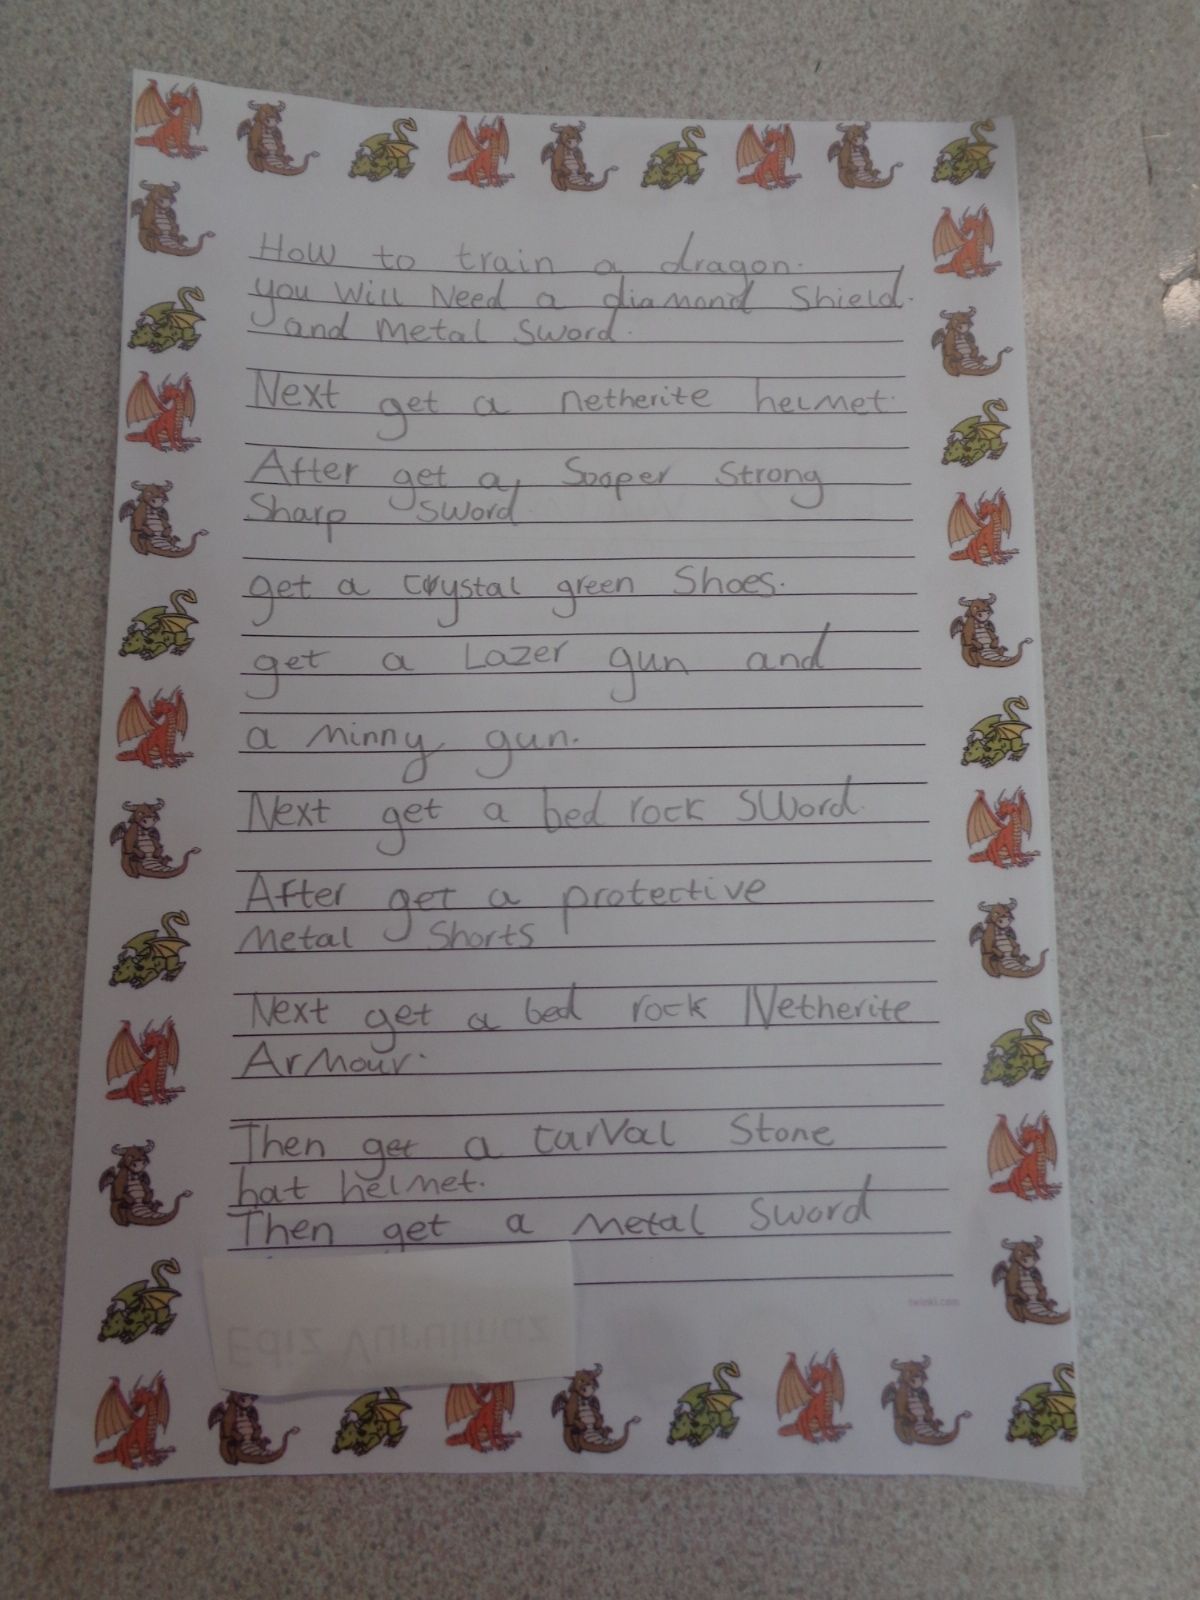 How to train a dragon.
you Will Need a diamond Shield.
and Metal Sword.
Next get a netherite helmet.
After get a Sooper Strong
Sharp sword
get a crystal green Shoes.
get a Lazer gun and
a minny gun.
Next get a bed rock Sword.
After get a protective
Metal Shorts
Next get a bed rock Netherite
Armour.
Then get a tarval Stone
hat helmet.
Then get a metal Sword
twinkl.com